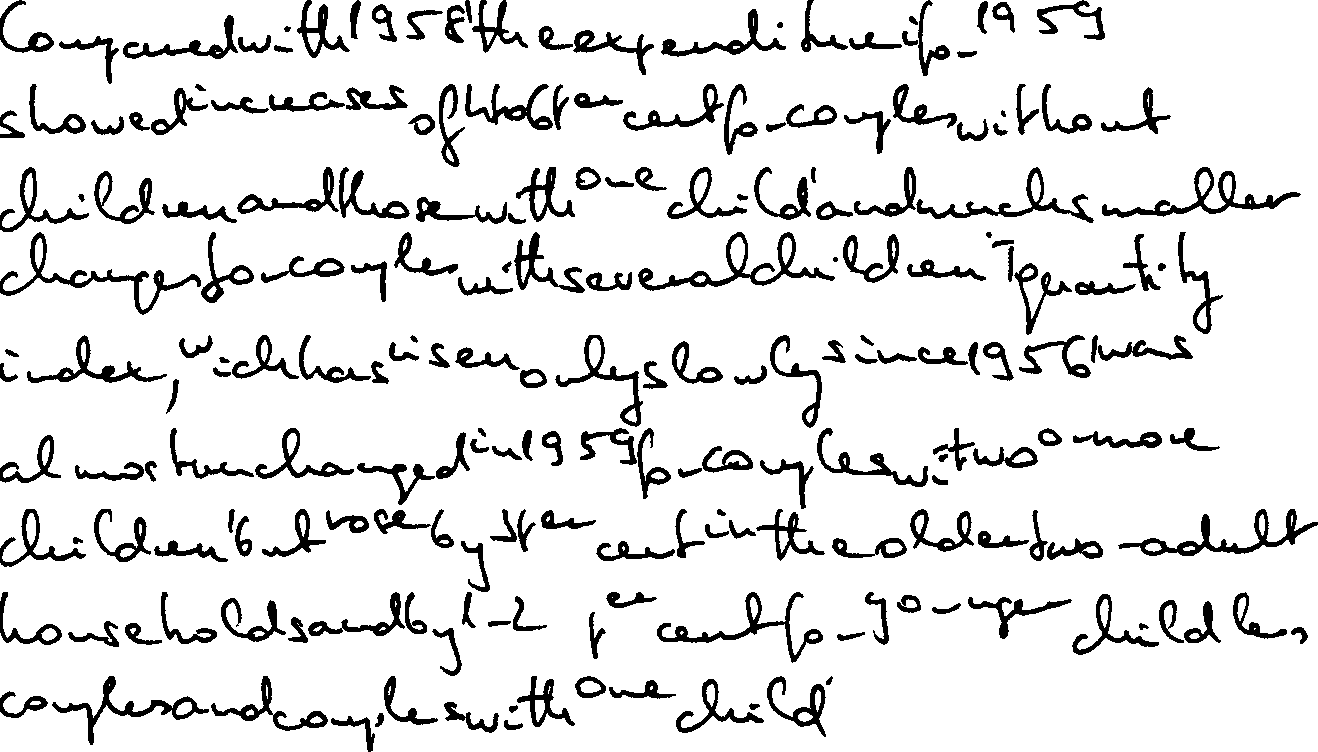 Compared with 1958 the expenditure for 1959
showed increases of 4 to 6 per cent for couples without
children and those with one child and much smaller
changes for couples with several children. quantity
index, wich has risen only slowly since 1956, was
almost unchanged in 1959 for couples with two or more
children but rose by 3 per cent in the older two-adult
households and by 1-2 per cent for younger childless
couples and couples with one child